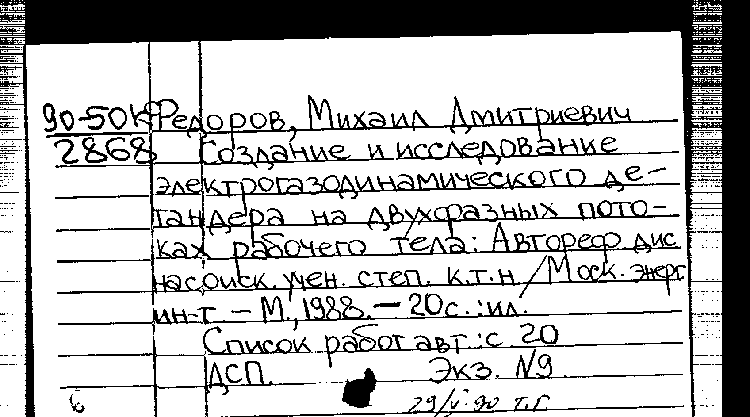 90-50К Федоров, Михаил Дмитриевич
2868 Создание и исследование
электрогазодинамического де-
тандера на двухфазных пото-
ках рабочего тела: Автореф дис
на соиск. учен. степ. к.т.н / Моск. энерг.
ин-т. - М., 1988. - 20 с. : ил.
Список работ авт.: с. 20
ДСП. Экз. N9
6 29/V-90 т.г